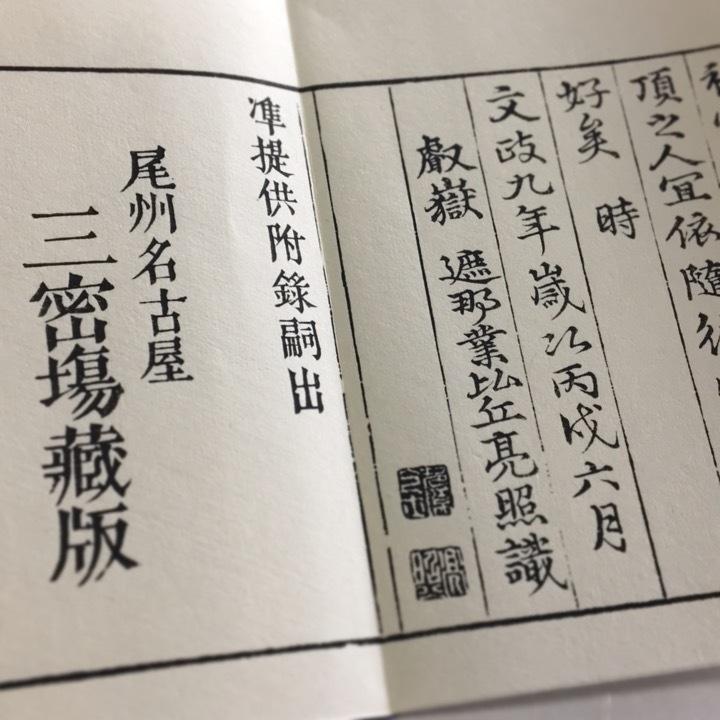 頂之人宜依隨
好矣　時
文政九年歲次丙戌六月
叡嶽　遮那業比丘亮照識
凖提供附錄嗣出
尾州名古屋
三密塲藏版